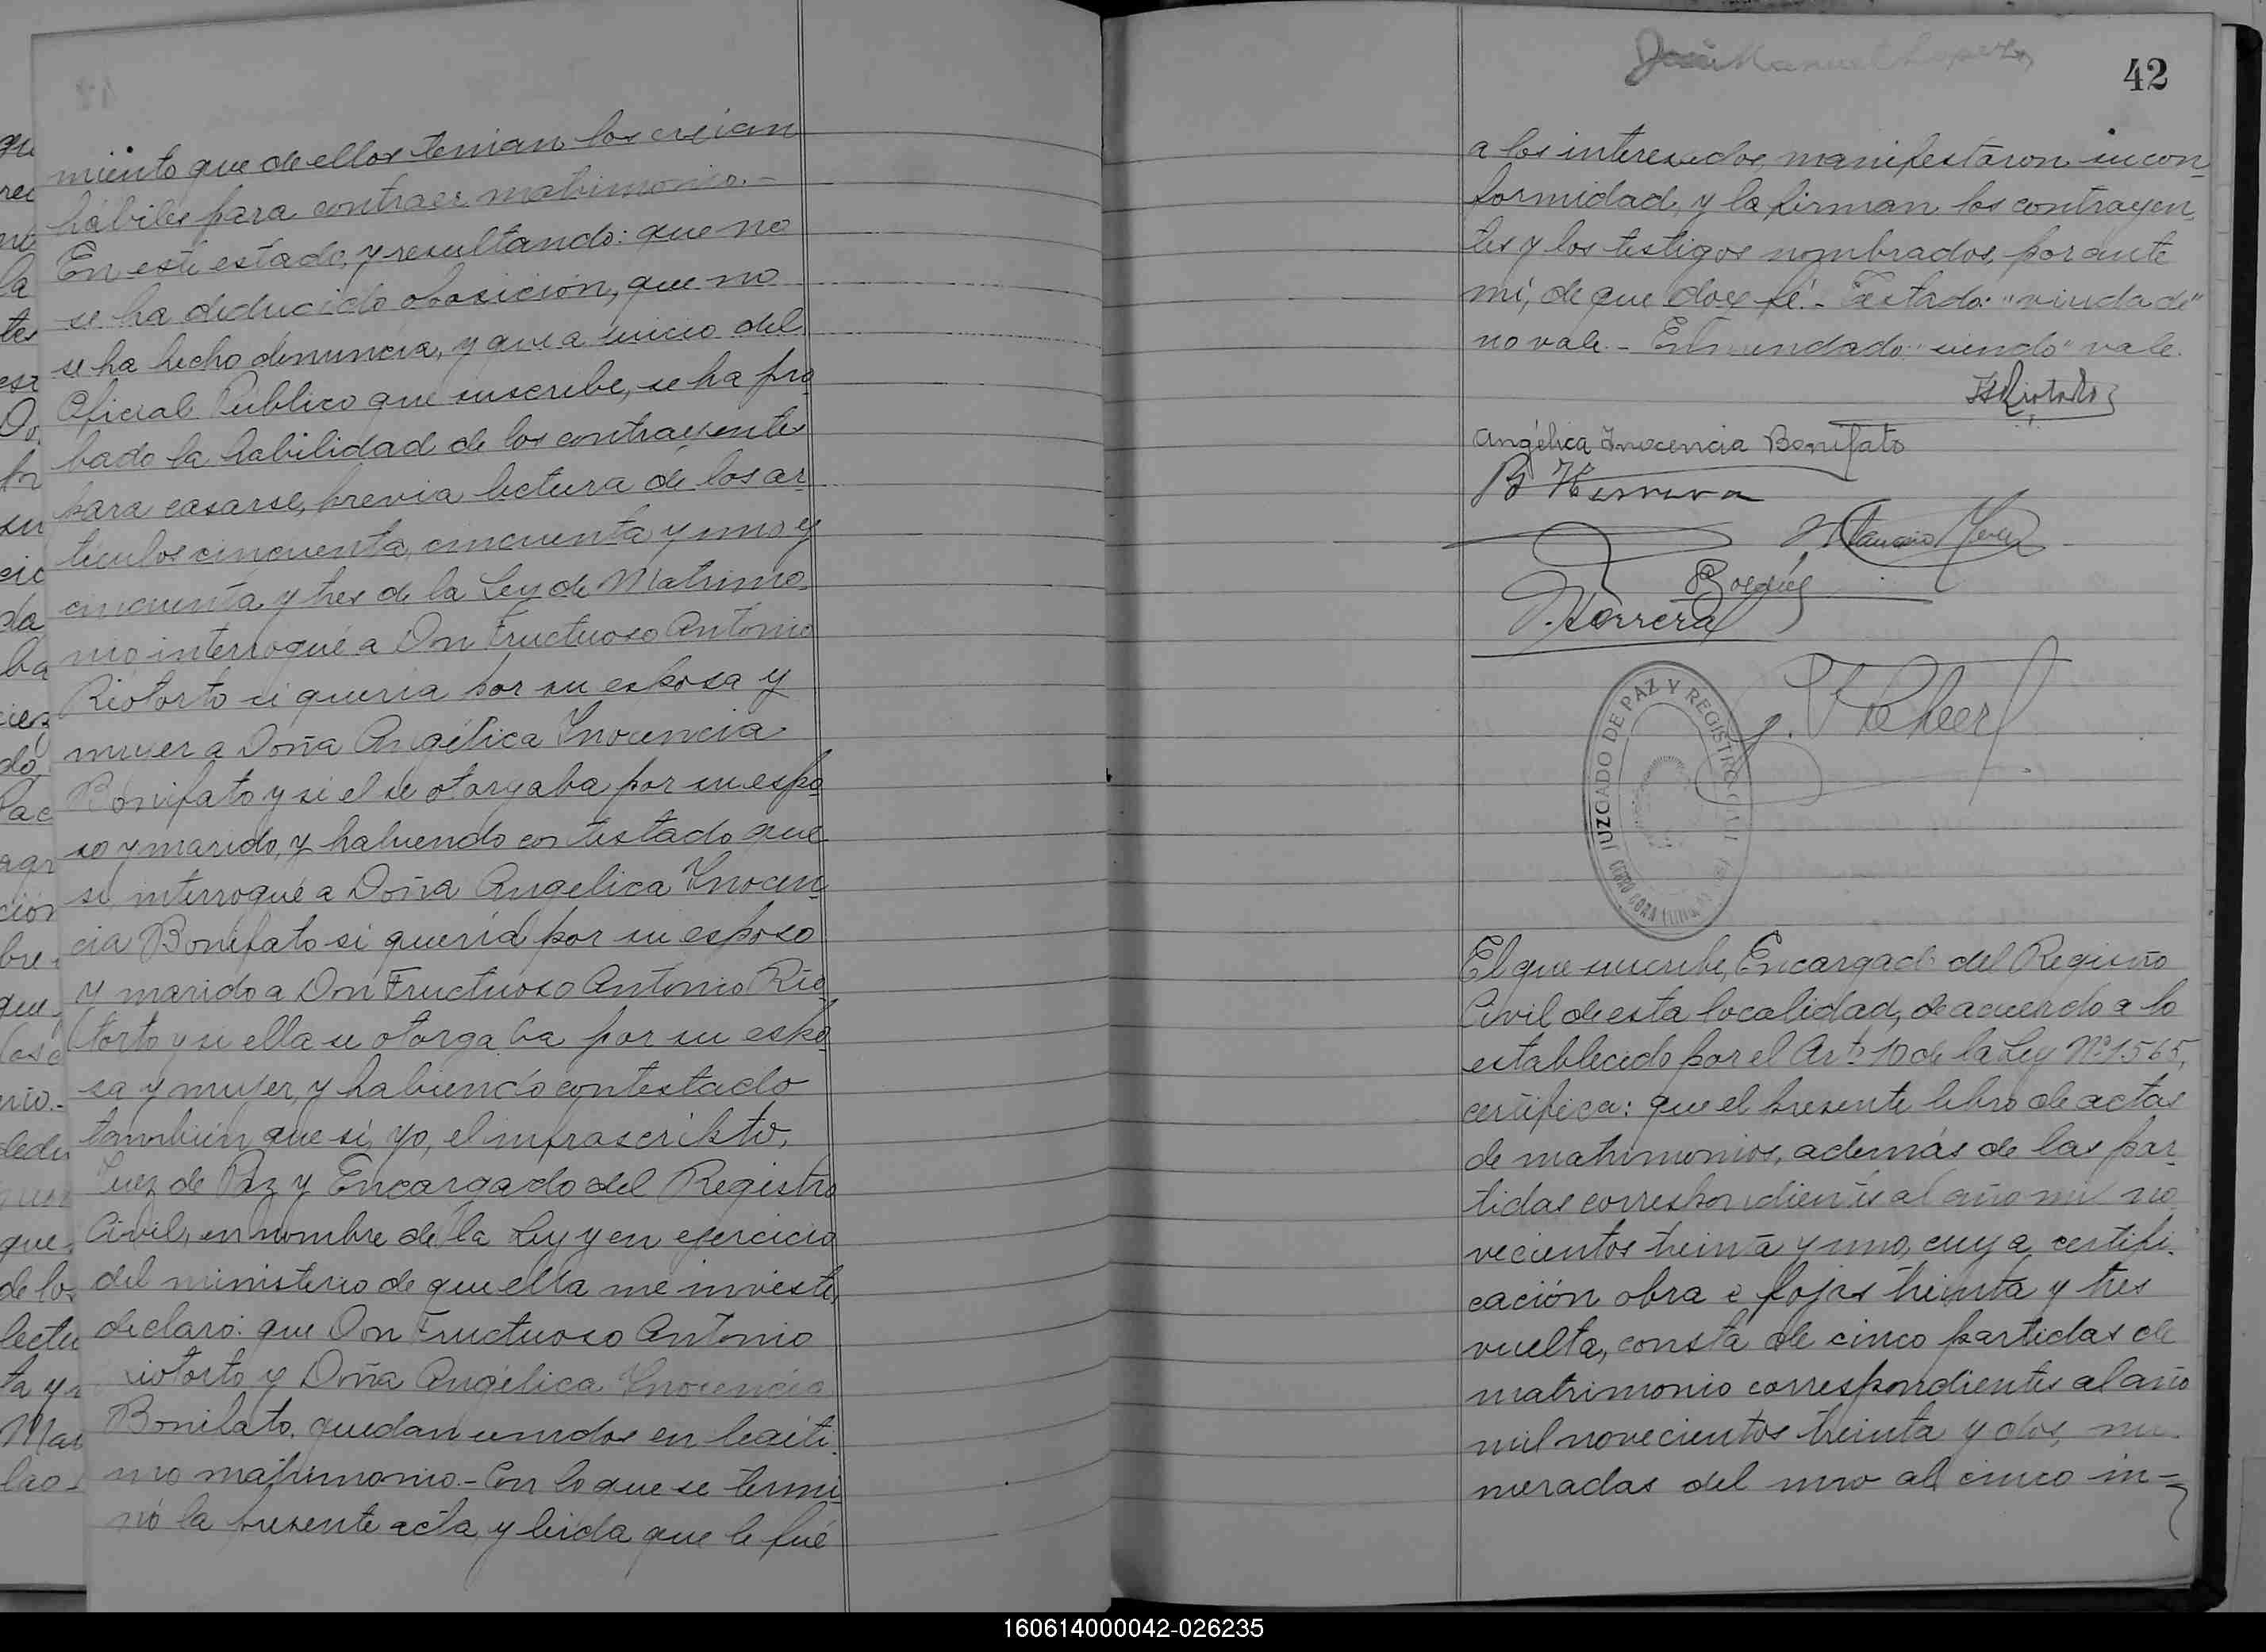 miento que de ellos tenian los creian
hábiles para contraer matrimonio.-
En este estado, y resultando: que no
se ha deducido oposicion, que no
se ha hecho denuncia, y que a juicio del
Oficial Publico que suscribe, se ha pro
bado la habilidad de los contrayentes
para casarse, previa lectura de los ar
ticulos cincuenta, cincuenta y uno y
cincuenta y tres de la Ley de Matrimo
nio interroqué a Don Fructuoso Antonio
Riotorto si queria por su esposa y
mujer a Doña Angélica Inocencia
Bonifato y si el se otorgaba por su espo
so y marido, y habiendo contestado que
si, interroqué a Doña Angelica Inocen
cia Bonifato si queria por su esposo
y marido a Don Fructuoso Antonio Rio
torto y si ella se otorgaba por su espo
sa y mujer, y habiendo contestado
tambien que si, yo, el infrascripto,
Juez de Paz y Encargado del Registro
Civil, en nombre de la Ley y en ejercicio
del ministerio de que ella me inviste,
declaro: que Don Fructuoso Antonio
Riotorto y Doña Angélica Inocencia
Bonifato, quedan unidos en legiti
mo matrimonio.- Con lo que se termi
nó la presente acta, y leida que le fué
42
a los interesados, manifestaron su con
formidad, y la firman los contrayen
tes y los testigos nombrados, por ante
mi, de que doy fé.- Testado: "viuda de"
no vale.- Enmendado: "siendo" vale.
Angélica Inocencia Bonifato
B Herrera
J. Herrera
JUZGADO DE PAZ Y REGISTRO CIVIL
El que suscribe, Encargado del Registro
Civil de esta localidad, de acuerdo a lo
establecido por el Art.º 10 de la Ley Nº 1565,
certifica: que el presente libro de actas
de matrimonios, además de las par
tidas correspondientes al año mil no
vecientos treinta y uno, cuya certifi
cación obra a fojas treinta y tres
vuelta, consta de cinco partidas de
matrimonio correspondientes al año
mil novecientos treinta y dos, nu
meradas del uno al cinco in-
160614000042-026235